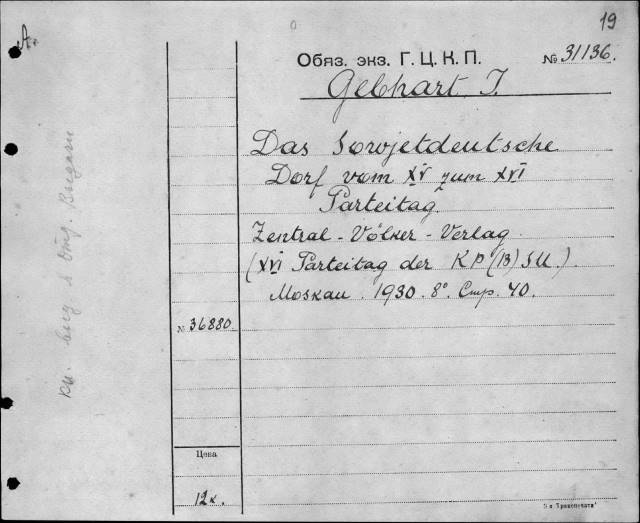 19
А.
Обяз. экз. Г. Ц. К. П. № 31136.
Gebhart J.
Das Sowjetdeutsche
Dorf vom XV zum XVI
Parteitag.
Zentral-Völker-Verlag.
(XVI Parteitag der KP(B)SU.)
Moskau. 1930. 8°. Стр. 40.
№ 36880
Цена
12к.
кн. выд. в отд.